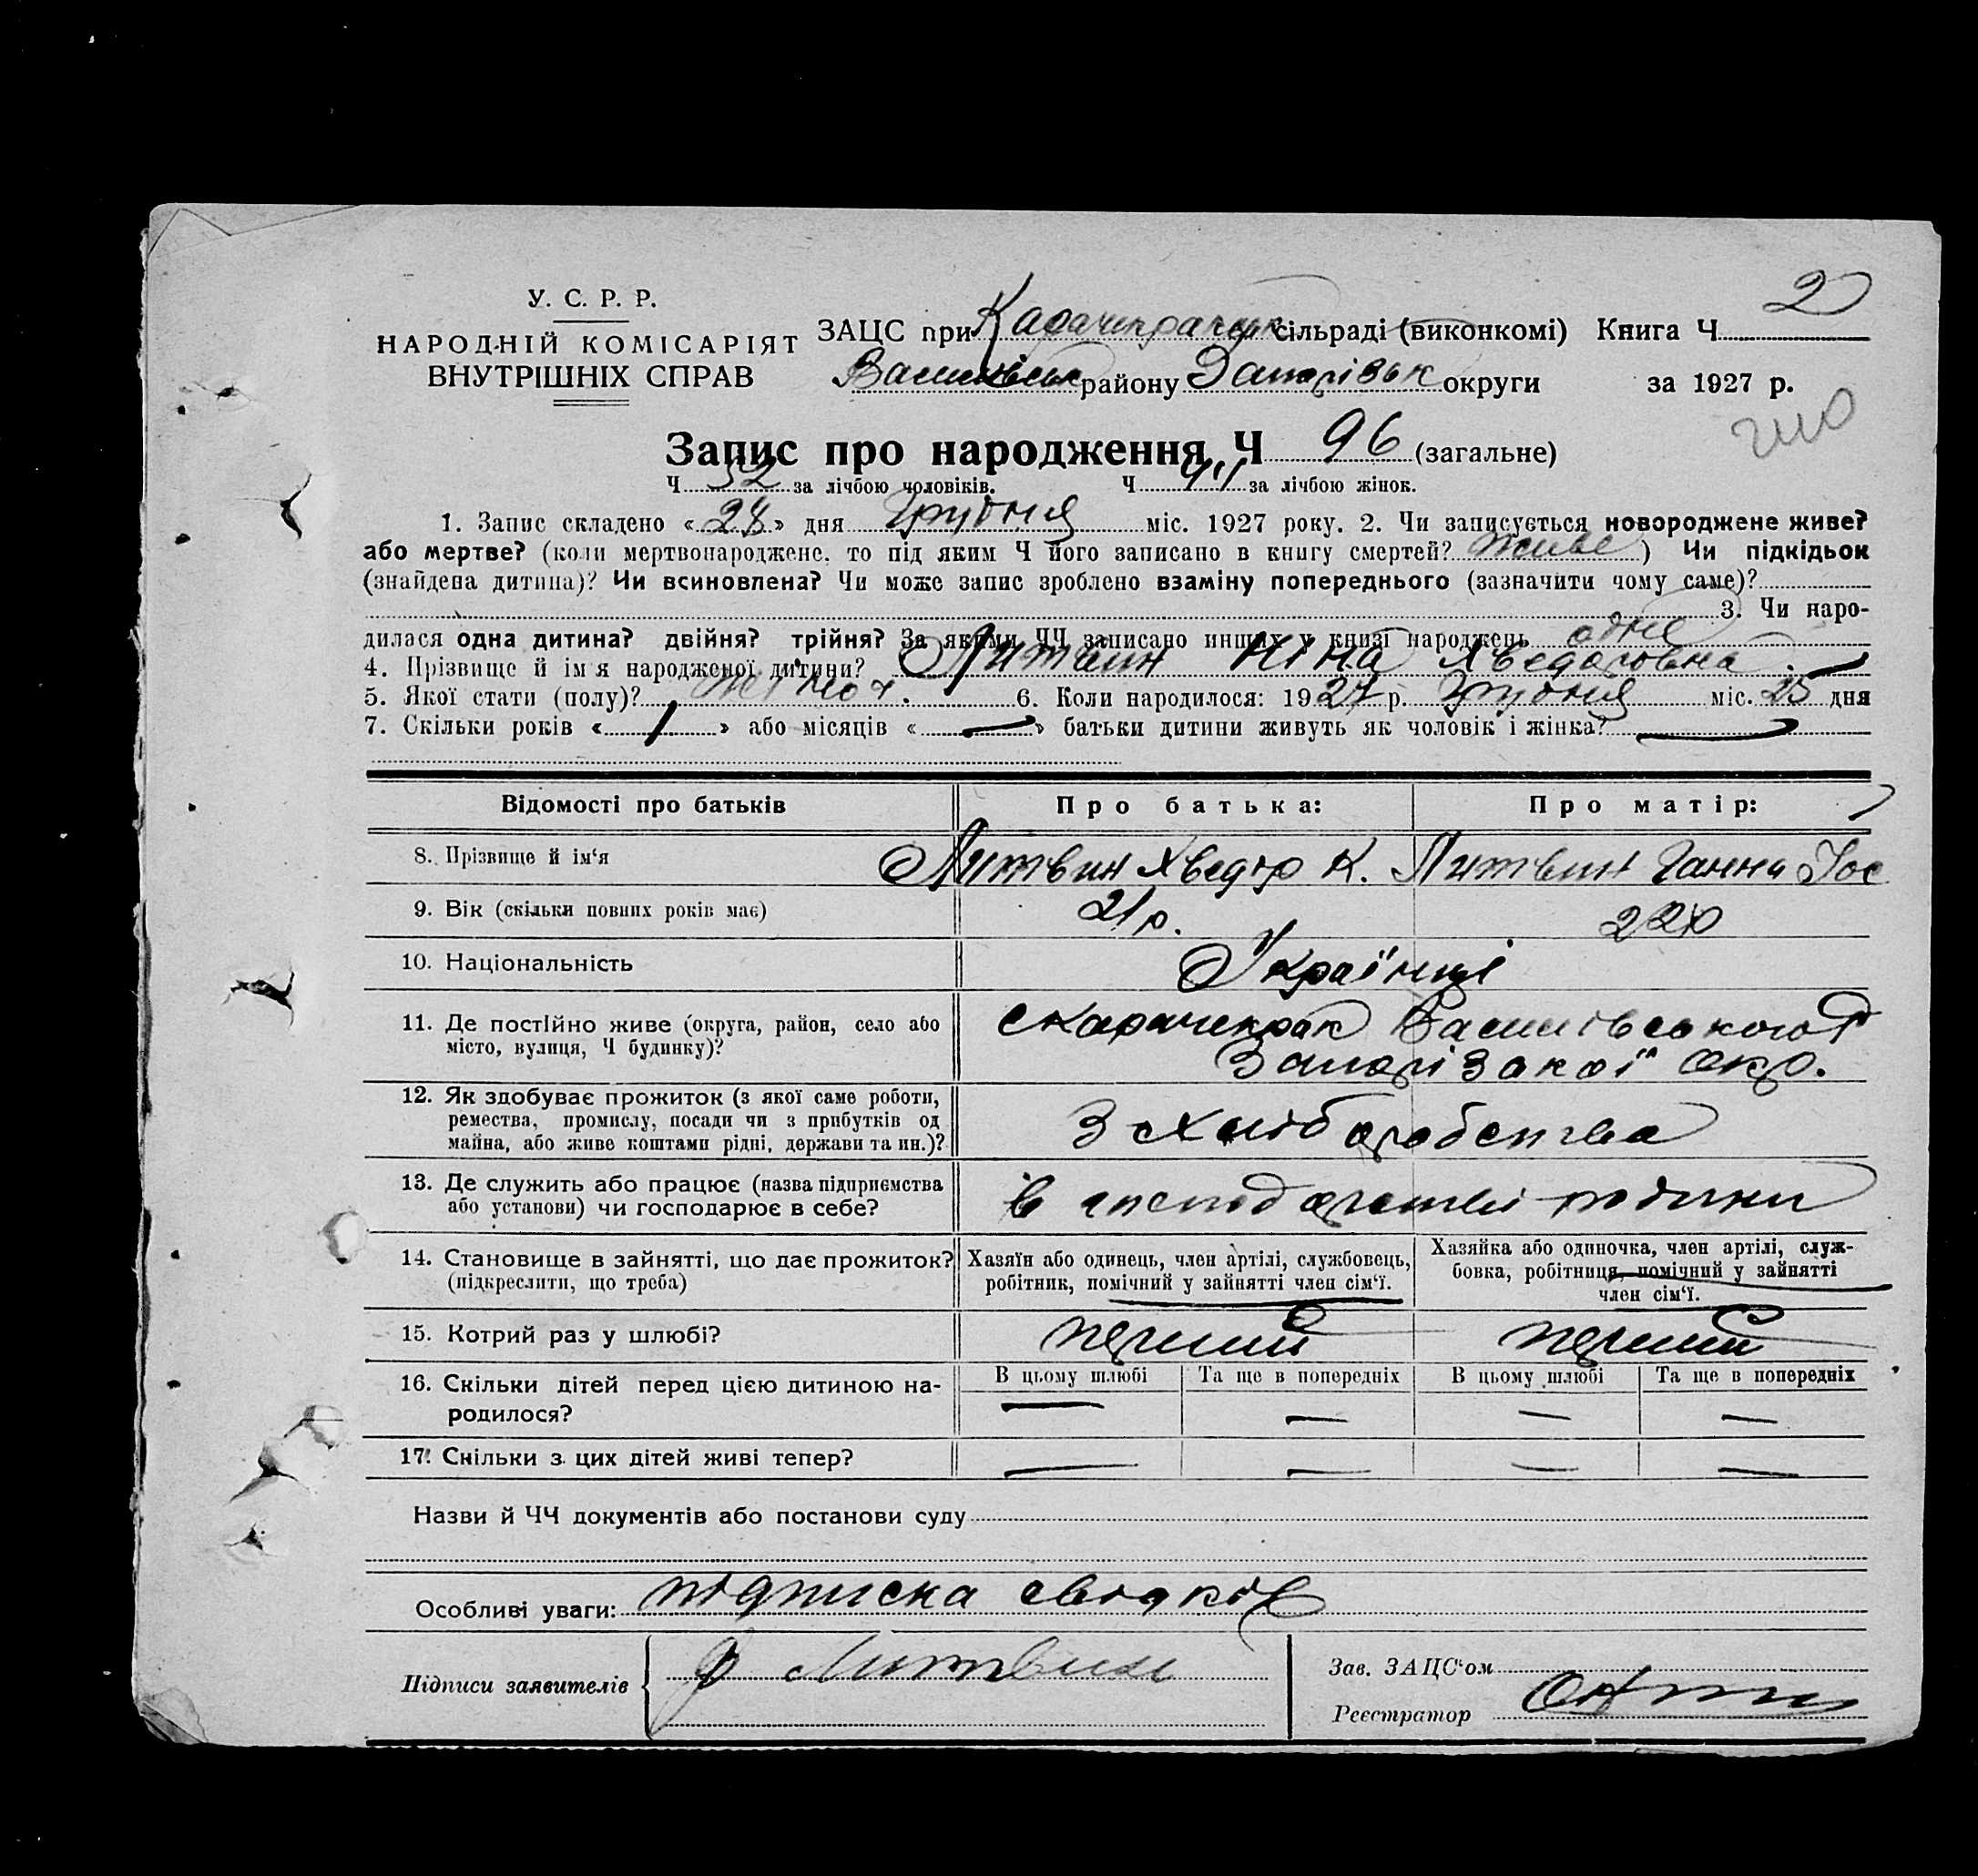 У. С. Р. Р.
НАРОДНІЙ КОМІСАРІЯТ
ВНУТРІШНІХ СПРАВ
ЗАЦС при сільраді (виконкомі) Книга Ч 2
Василівськ району Запорізьк округи за 1927 р.
Запис про народження Ч 96 (загальне)
Ч 52 за лічбою чоловіків. Ч за лічбою жінок.
1. Запис складено « 28 » дня Грудня міс. 1927 року. 2. Чи записується новороджене живе?
або мертве? (коли мертвонароджене, то під яким Ч його записано в книгу смертей? живе ) Чи підкідьок
(знайдена дитина)? Чи всиновлена? Чи може запис зроблено взаміну попереднього (зазначити чому саме)?
3. Чи наро-
дилася одна дитина? двійня? трійня? За якими ЧЧ записано инших у книзі народжень одне
4. Прізвище й ім'я народженої дитини? Литвин Ніна Хведоровна
5. Якої стати (полу)? жіноч. 6. Коли народилося: 1927 р. Грудня міс. 25 дня
7. Скільки років « — » або місяців « — » батьки дитини живуть як чоловік і жінка? —
Відомості про батьків Про батька: Про матір:
8. Прізвище й ім'я Литвин Хведір К. Литвин Ганна Йос
9. Вік (скільки повних років має) 21 р. 22 р
10. Національність Українці
11. Де постійно живе (округа, район, село або
місто, вулиця, Ч будинку)? с Карачекрак Василівського Р
Запорізької окр.
12. Як здобуває прожиток (з якої саме роботи,
ремества, промислу, посади чи з прибутків од
майна, або живе коштами рідні, держави та ин.)? З хліборобства
13. Де служить або працює (назва підприємства
або установи) чи господарює в себе? в господарстві родини
14. Становище в зайнятті, що дає прожиток?
(підкреслити, що треба)
Хазяїн або одинець, член артілі, службовець,
робітник, помічний у зайнятті член сім'ї.
Хазяйка або одиночка, член артілі, служ-
бовка, робітниця, помічний у зайнятті
член сім'ї.
15. Котрий раз у шлюбі? перший перший
16. Скільки дітей перед цією дитиною на-
родилося?
В цьому шлюбі Та ще в попередніх В цьому шлюбі Та ще в попередніх
— — — —
17. Скільки з цих дітей живі тепер? — — — —
Назви й ЧЧ документів або постанови суду
Особливі уваги: підписка свідків
Підписи заявителів Ф Литвин
Зав. ЗАЦС'ом
Реєстратор